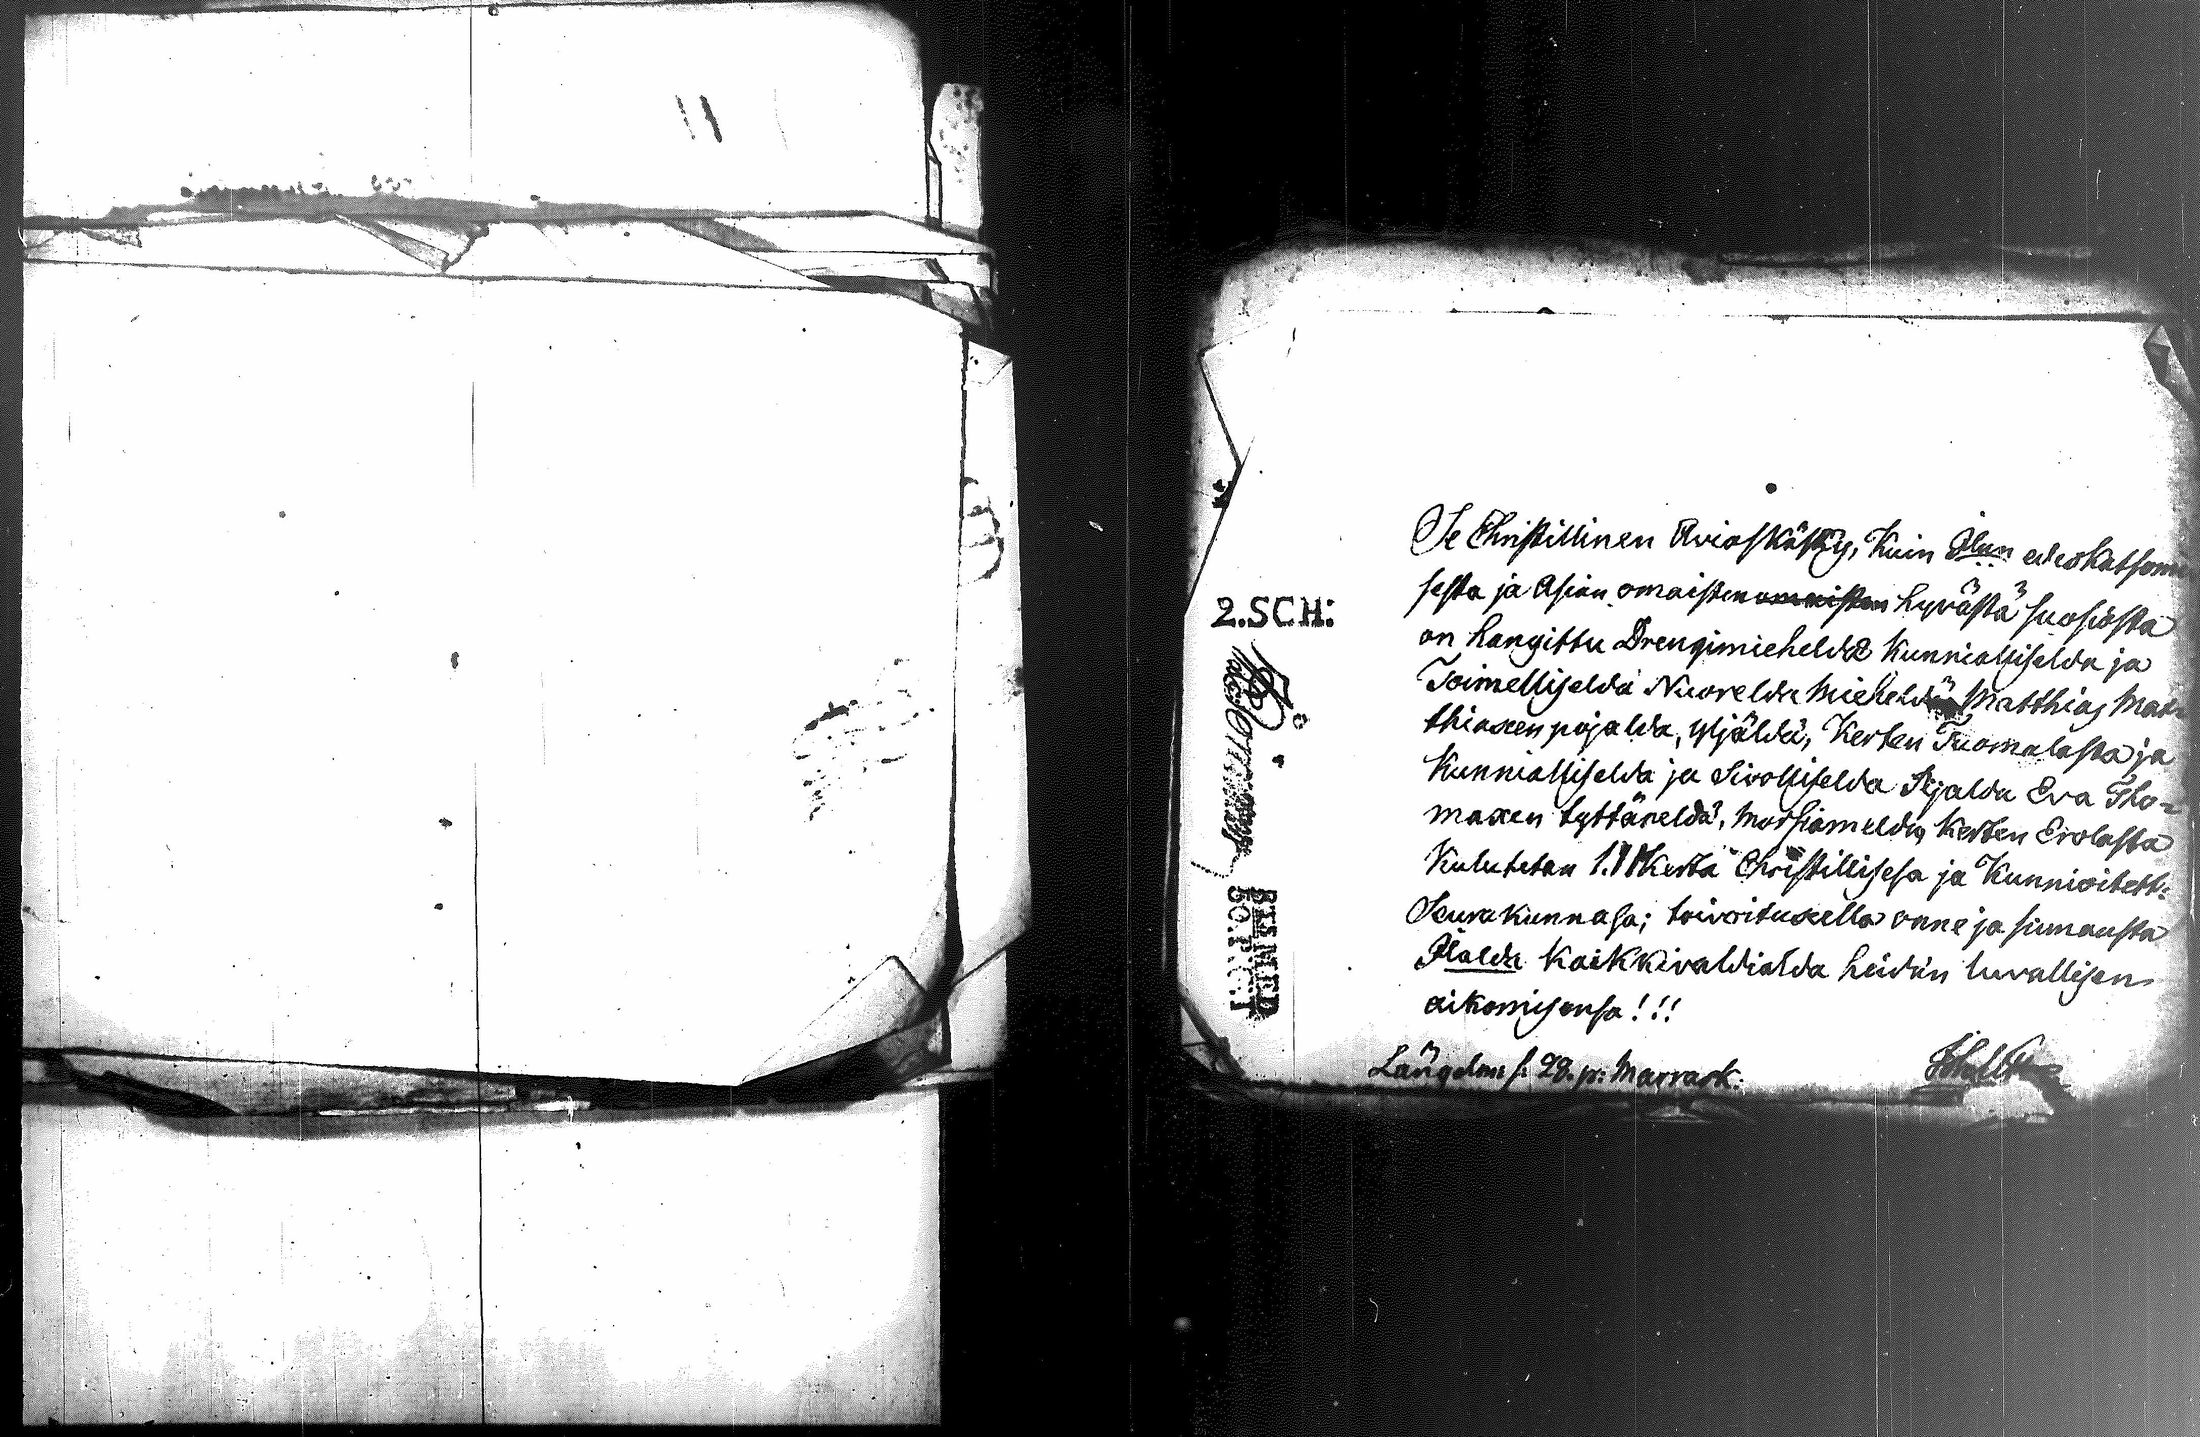 Se Christillinen Avioskäsky, Kuin Jlun edeskatsomi
sesta ja Asian omaisten omaisten hyvästä suosiosta
on hangittu Drengimieheldä Kunnialliselda ja
Toimelliselda Nuorelda Mieheldä Matthias Mat-
thiaxen pojalda, yljäldä, Kerten Tuomalasta ja
Kunnialliselda ja Sivolliselda Pijalda Eva Tho-
maxen tyttäreldä, Morsiamelda Kerten Erolasta
Kulutetan 1. Kerta Christillisesa ja Kunnioitett:
Seurakunnasa; toivoituxella onne ja siunausta
Jlalda Kaikkivaldialda heidän luvallisen
aikomisensa!!!
Längelm: s. 28. p: Marrask:
2.SCH:
STEMPLAD